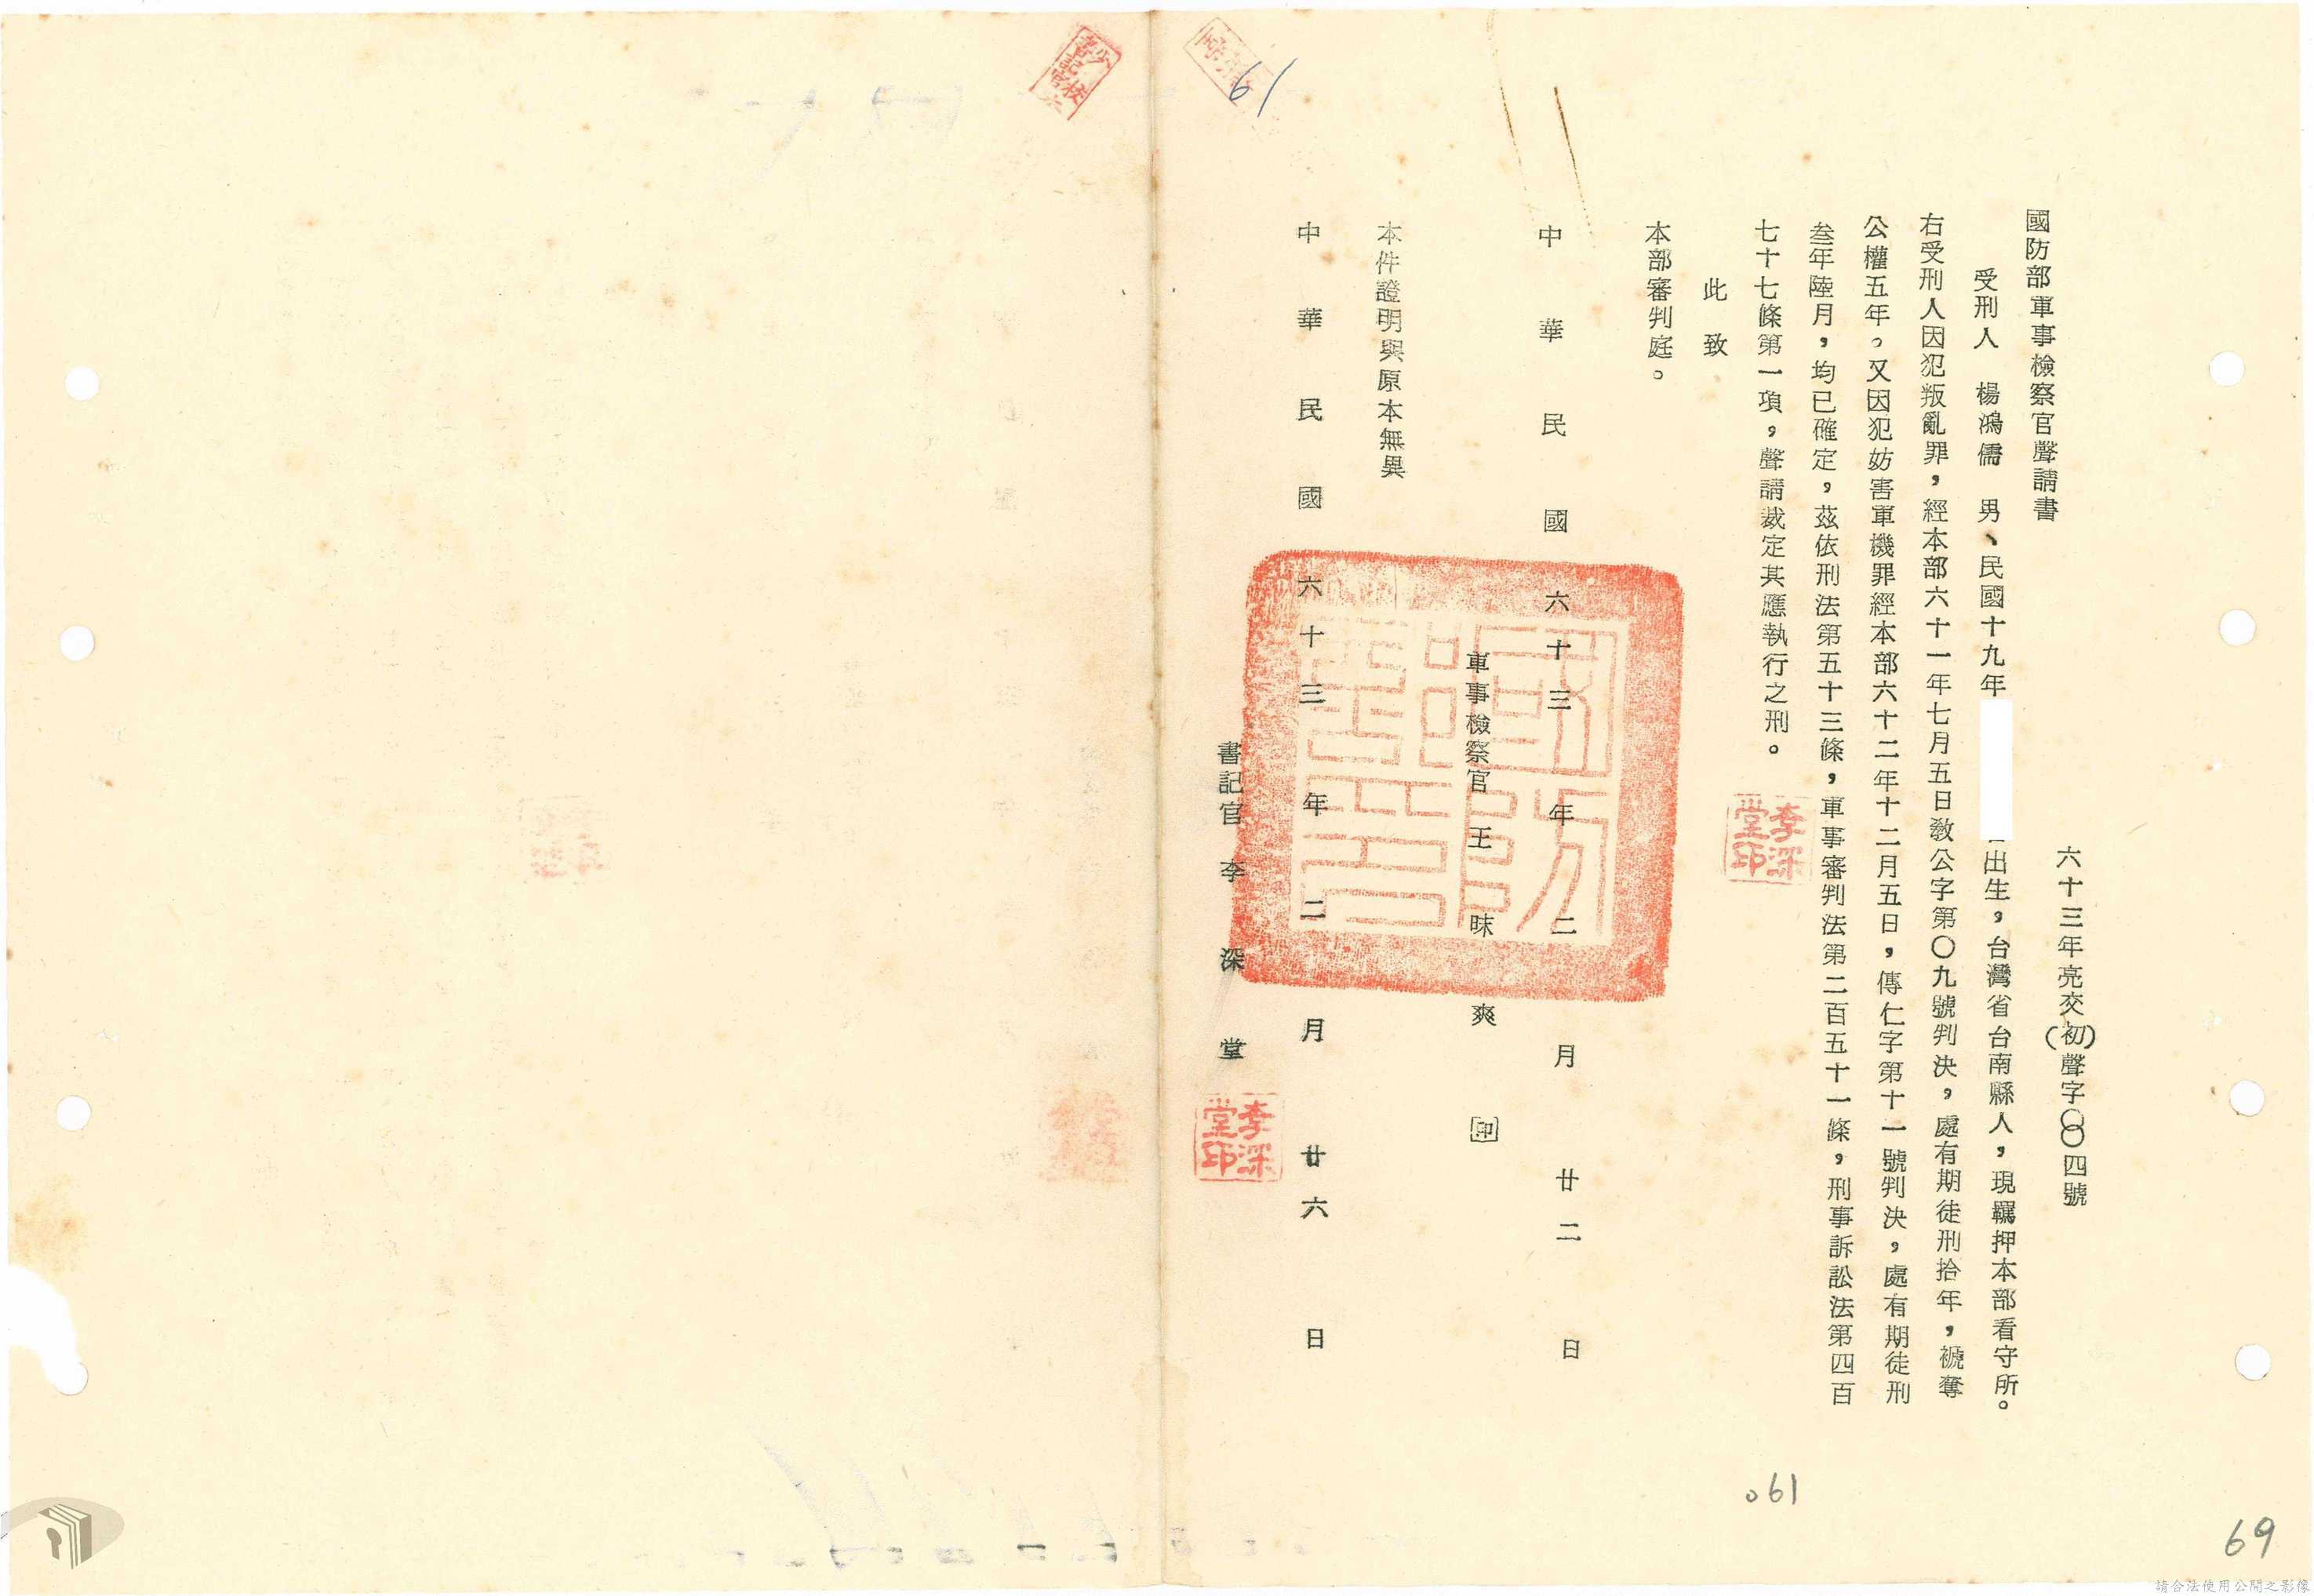 國防部軍事檢察官聲請書
六十三年亮交(初)聲字〇〇四號
受刑人　楊鴻儒　男、民國十九年
出生，台灣省台南縣人，現羈押本部看守所。
右受刑人因犯叛亂罪，經本部六十一年七月五日教公字第〇九號判決，處有期徒刑拾年，褫奪
公權五年。又因犯妨害軍機罪經本部六十二年十二月五日，傳仁字第十一號判決，處有期徒刑
叁年陸月，均已確定，茲依刑法第五十三條，軍事審判法第二百五十一條，刑事訴訟法第四百
七十七條第一項，聲請裁定其應執行之刑。
李深堂印
此致
本部審判庭。
中華民國六十三年二月廿二日
軍事檢察官　王昧爽　印
國防部印
本件證明與原本無異
中華民國六十三年二月廿六日
書記官　李深堂
李深堂印
61
061
69
請合法使用公開之影像